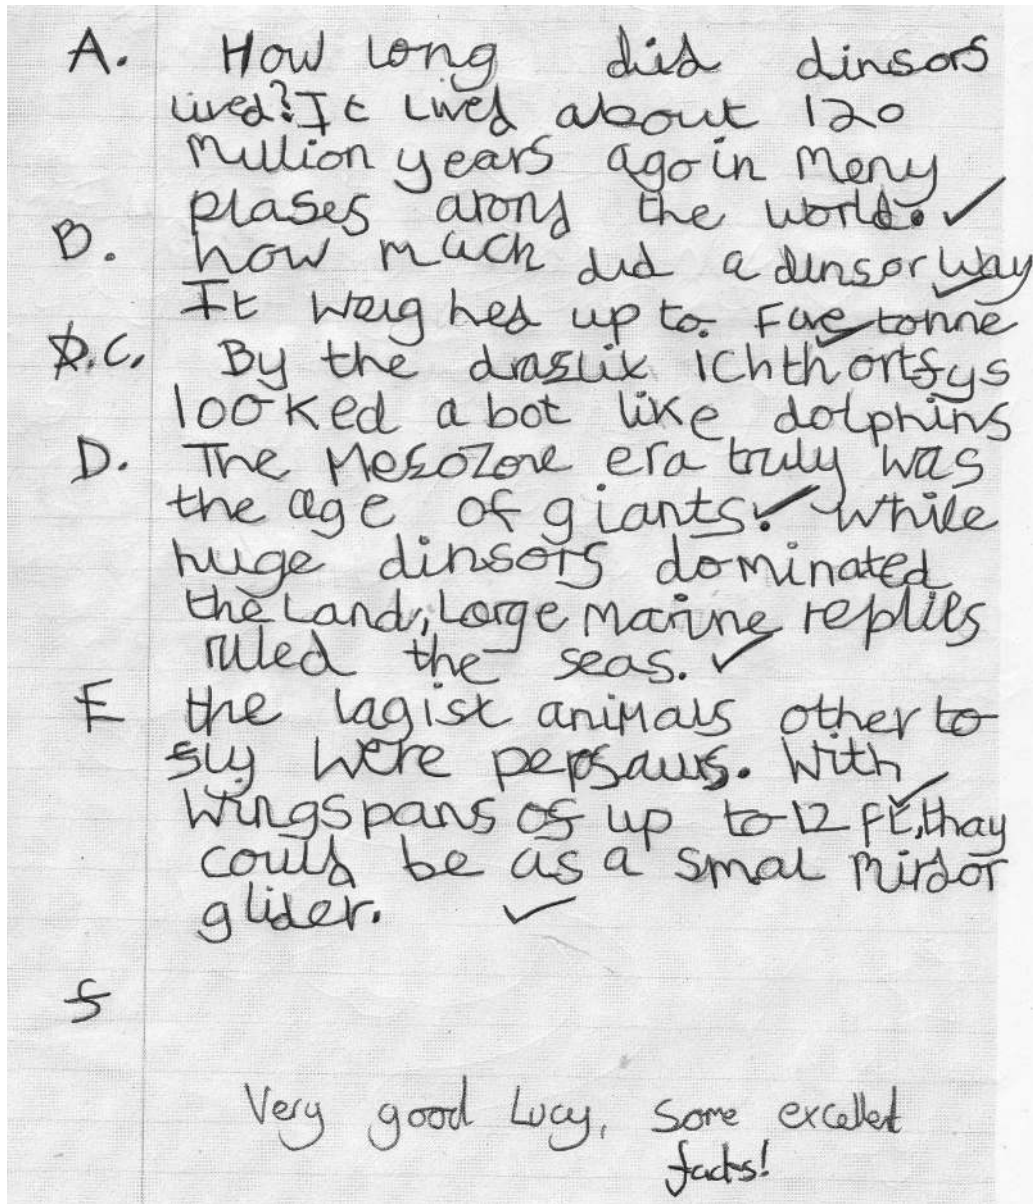 A. How long did dinsors
lived? It lived about 120
million years ago in meny
plases arong the world.
B. how much did a dinsor way
It weighed up to. five tonne
C. By the drasiix ichthortsys
looked a bot like dolphins
D. The Mesozore era truly was
the age of giants. While
huge dinsors dominated
the Land, Large Marine repliles
ruled the seas.
E the lagist animals other to
sly were pepsaurs. With
wingspans of up to 12 ft, thay
could be as a smal mirdor
glider.
f
Very good Lucy, Some excellent
facts!